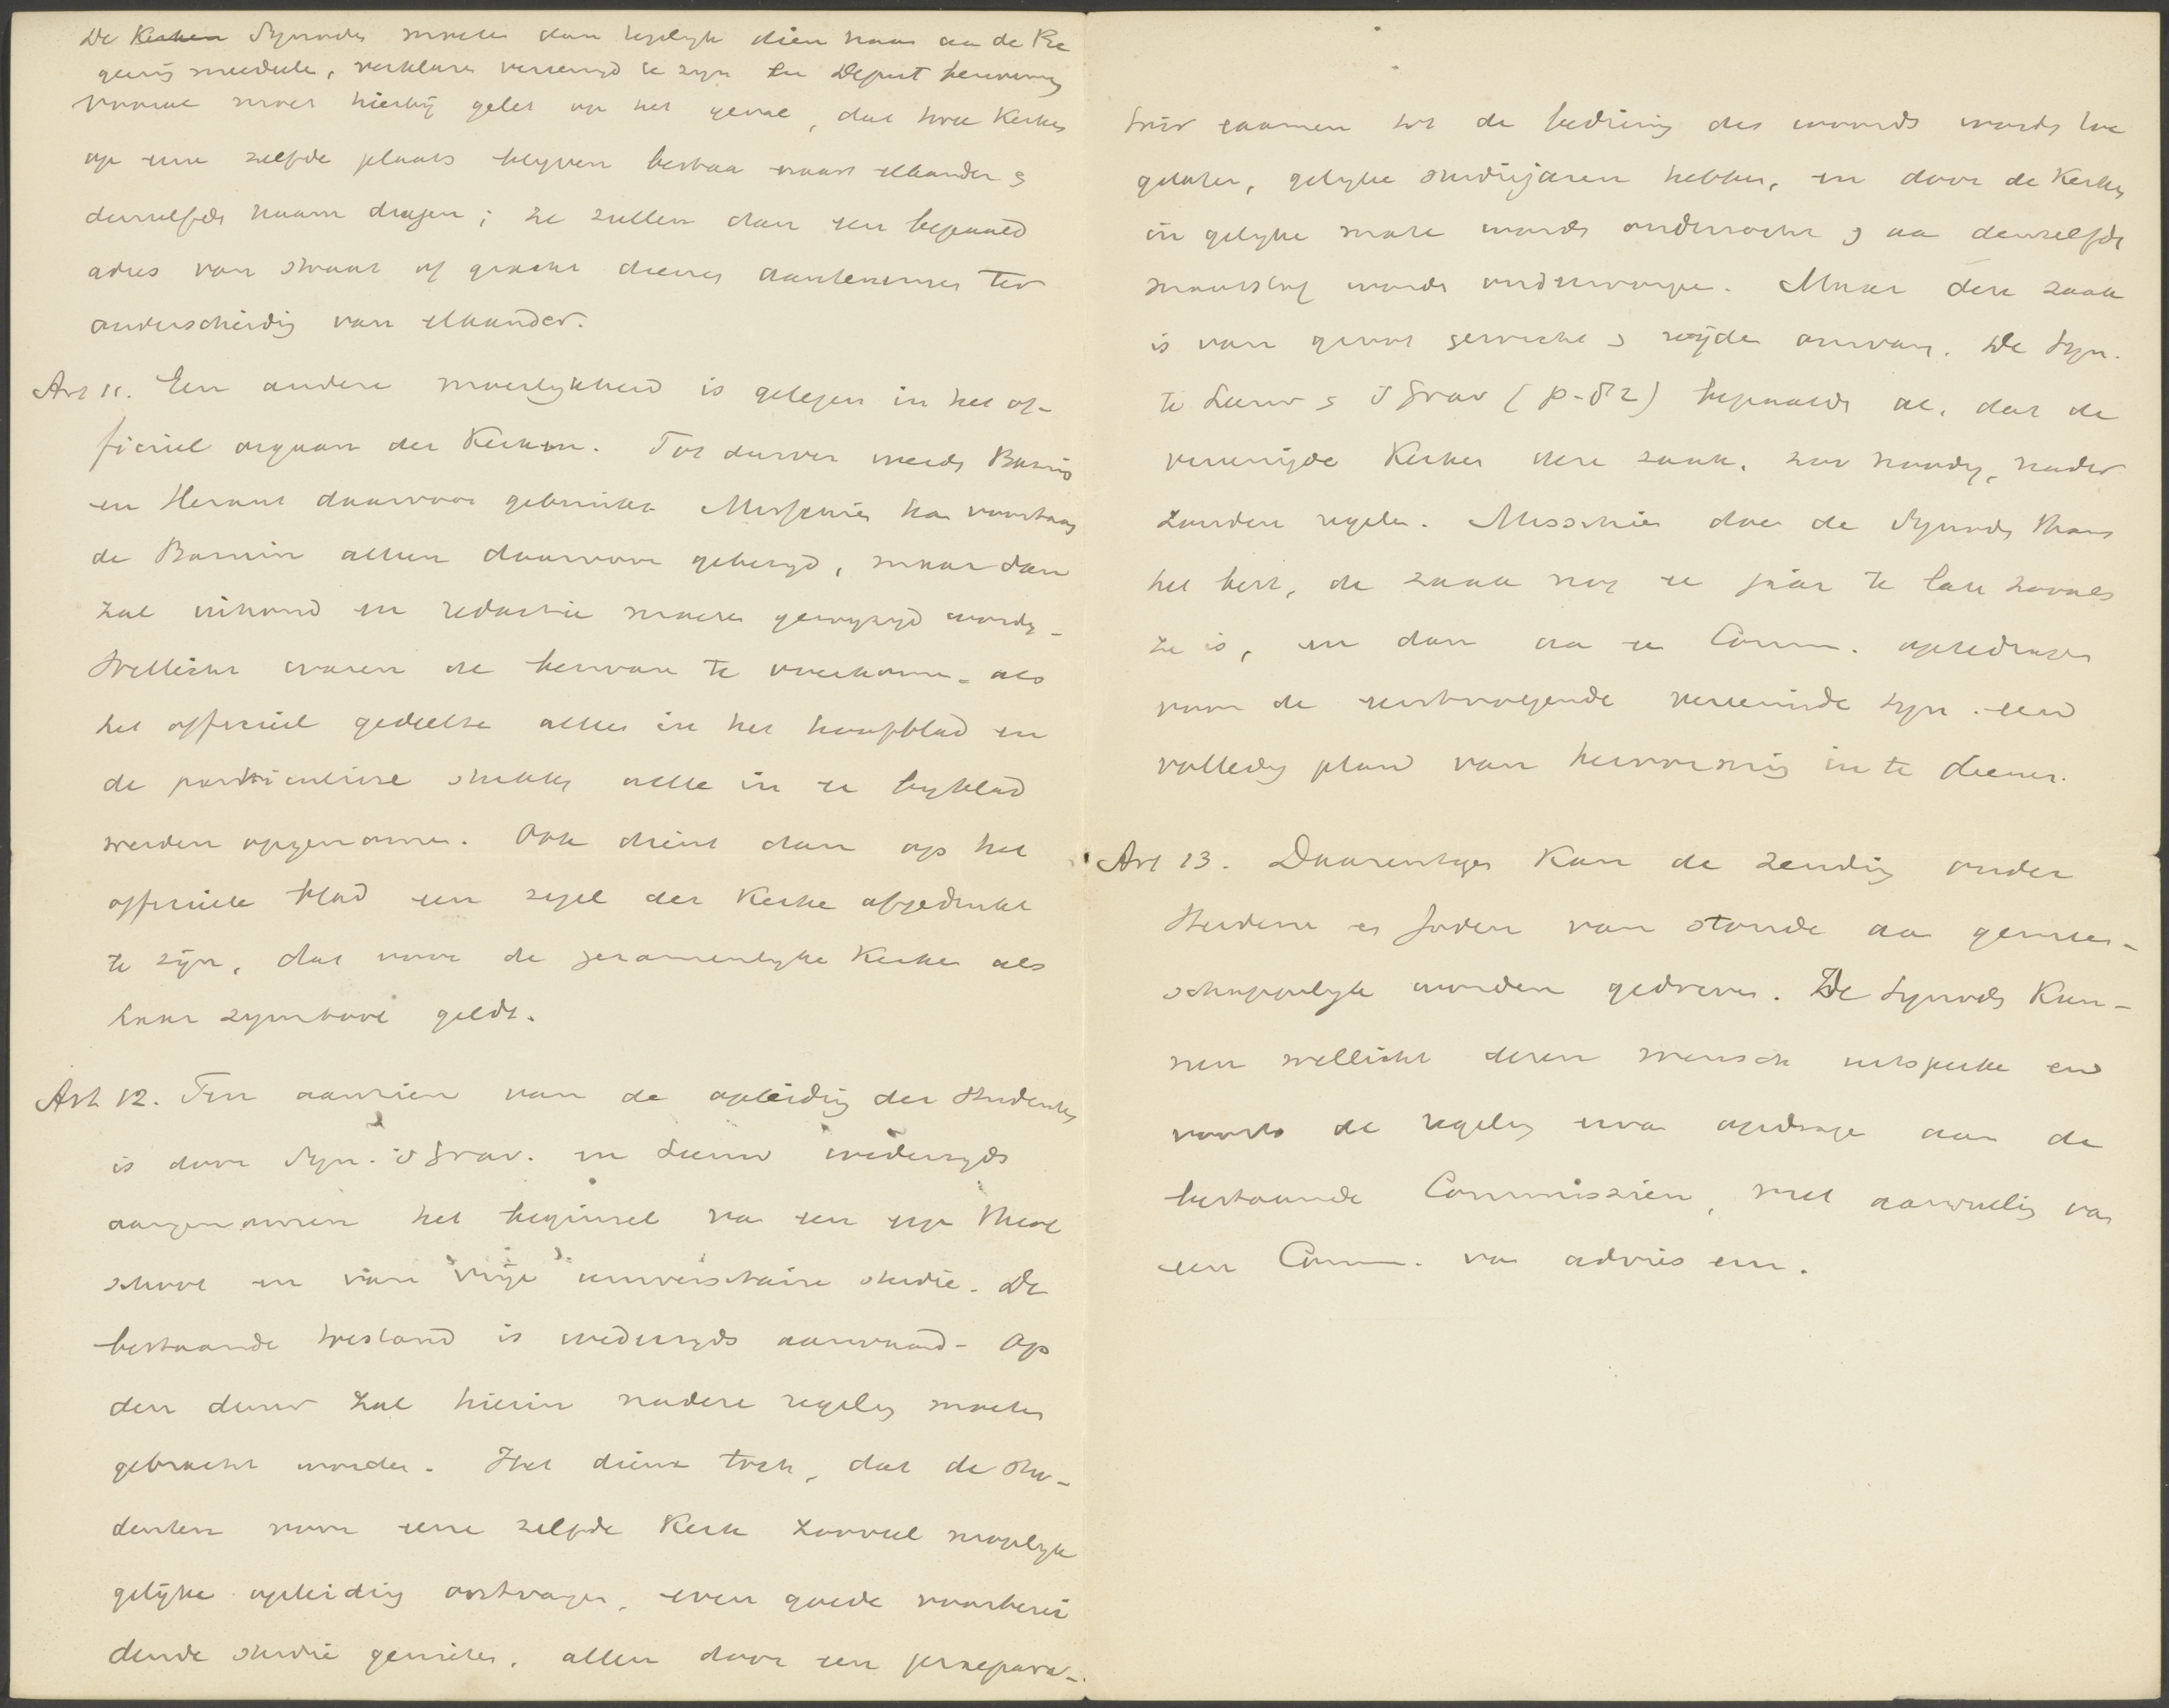 De Kerken Synodes moeten dan tegelijk dien naam aan de Re
geering meedeele, verklare vereenigd te zijn en Deput benoeming
vooral moet hierbij gelet op het geval, dat twee Kerken
op eene zelfde plaats blijven bestaa naast elkander &
denzelfde naam dragen; ze zullen dan een bepaald
adres van straat of gracht dienen aantenemen ter
onderscheidig van elkander.
Art 11. Een andere moeilijkheid is gelegen in het of-
ficieel orgaan der Kerken. Tot dusver werde Bazuin
en Heraut daarvoor gebruikt. Misschien kan voortaan
de Bazuin alleen daarvoor gebezigd, maar dan
zal inhoud en redactie moeten gewijzigd worde.
Wellicht waren de bezware te voorkome, als
het officieel gedeelte alles in het hoofdblad en
de particuliere stukken alle in een bijblad
werden opgenomen. Ook dient dan op het
officiele blad een zegel der Kerke afgedrukt
te zijn, dat voor de gezamenlijke Kerken als
haar symbool geldt.
Art 12. Ten aanzien van de opleidig der Studenten
is door Syn. 's Grav. en Leeuw wederzijds
aangenomen het beginsel va een eige Theol
school en van vrije universitaire studie. De
bestaande toestand is wederzijds aanvaard. Op
den duur zal hierin nadere regelig moeten
gebracht worden. Het dient toch, dat de stu-
denten voor eene zelfde Kerk zooveel mogelijk
gelijke opleidig ontvangen, even goede voorberei
dende studie genieten, allen door een praepara-
toir examen tot de bediening des woords worde toe
gelaten, gelijke studiejaren hebben, en door de Kerken
in gelijke mate worde onderzocht & aa denzelfde
maatstaf worde onderworpen. Maar deze zaak
is van groot gewicht & wijde omvang. De Syn.
te Leeuw & 's Grav (p. 52) bepaalde al, dat de
vereenigde Kerken deze zaak, zoo noodig, nader
zouden regelen. Misschien doe de Synode thans
het best, de zaak nog een jaar te late zooals
ze is, en dan aa een Comm. optedragen
voor de eerstvolgende vereenigde Syn. een
volledig plan van hervorming in te dienen.
Art 13. Daarentegen kan de zending onder
Heidenen en Joden van stonde aa gemeen-
schappelijk worden gedreven. De Synodes kun-
nen wellicht dezen wensch uitspreke en
voorts de regeling erva opdrage aan de
bestaande Commissiën, met aanvulling va
een Comm. va advies enz.